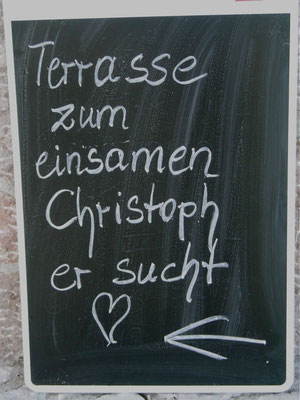 Terrasse
zum
einsamen
Christoph
er sucht